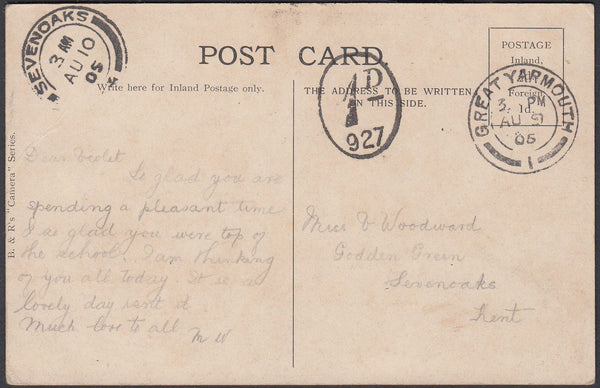 SEVENOAKS
3 AM
AU 10
05
POST CARD.
POSTAGE
Inland,
Foreign,
1d.
GREAT YARMOUTH
3. PM
AU 9
05
1
1D
927
Write here for Inland Postage only.
THE ADDRESS TO BE WRITTEN
ON THIS SIDE.
B. & R's "Camera" Series.
Dear Violet
So glad you are
spending a pleasant time
I so glad you were top of
the school. I am thinking
of you all today. It is a
lovely day isnt it
Much love to all
M W
Miss V Woodward
Godden Green
Sevenoaks
Kent